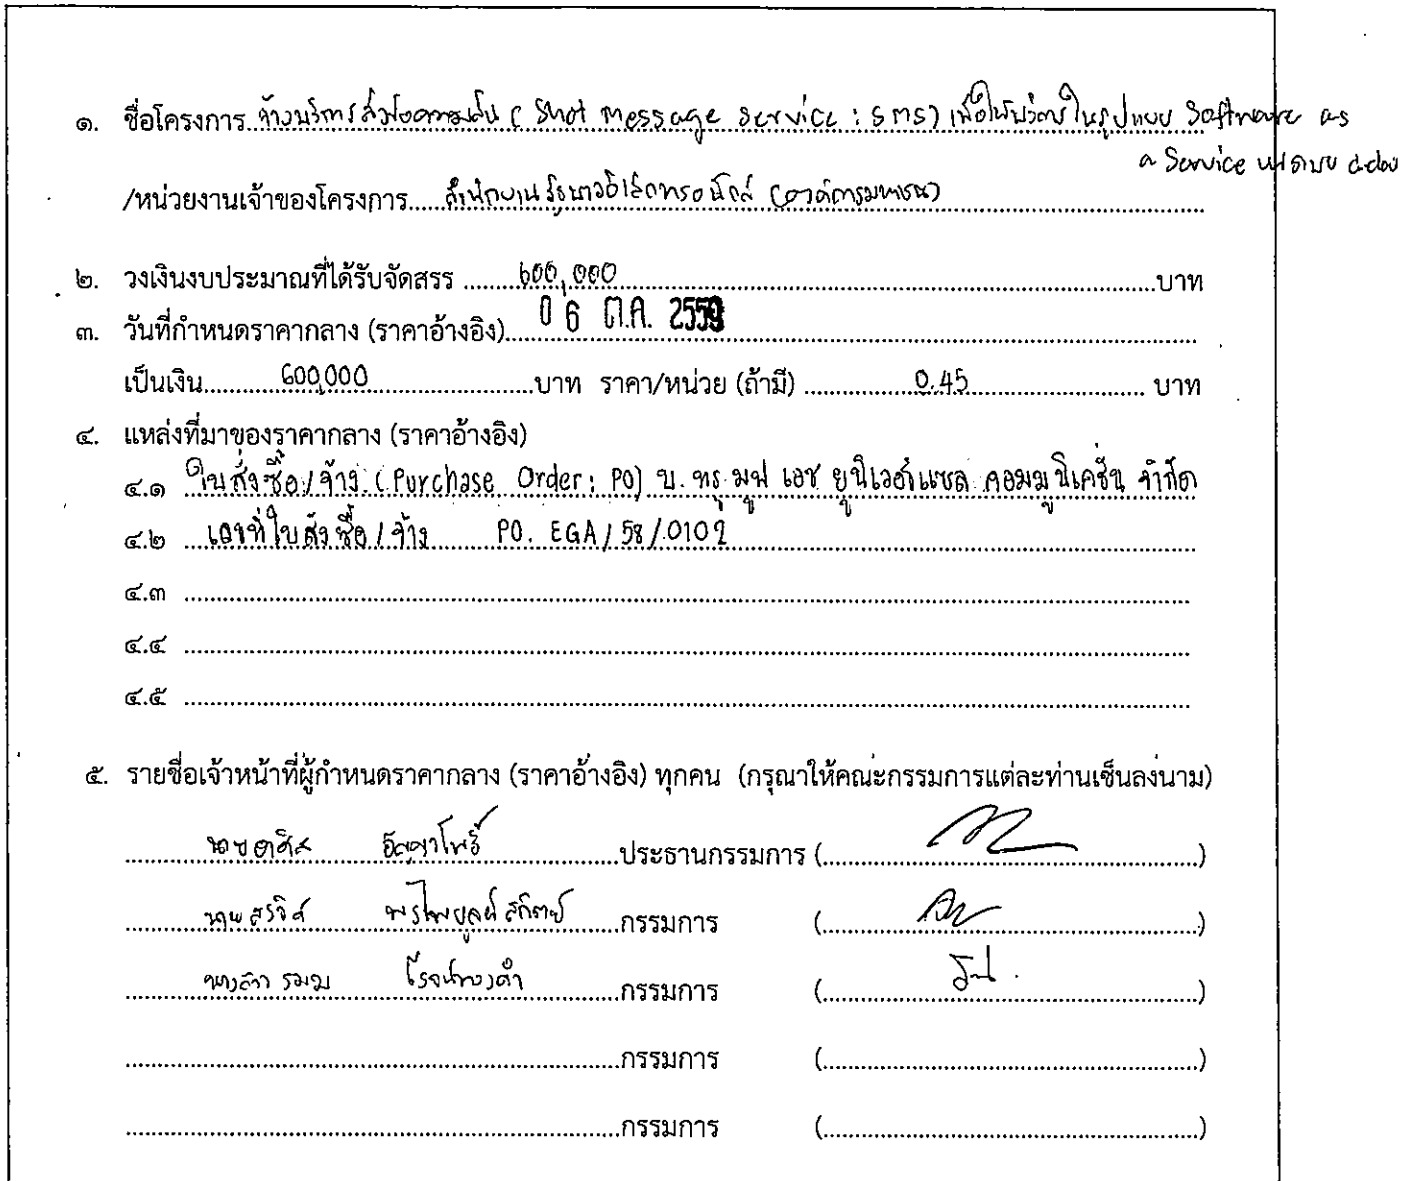 ๑. ชื่อโครงการ จ้างบริการส่งข้อความสั้น ( Shot Message Service : SMS) เพื่อให้บริการในรูปแบบ Software as
a Service
/หน่วยงานเจ้าของโครงการ.....สำนักงานรัฐบาลอิเล็กทรอนิกส์ (องค์การมหาชน)
๒. วงเงินงบประมาณที่ได้รับจัดสรร ........600,000........บาท
๓. วันที่กำหนดราคากลาง (ราคาอ้างอิง)....06 ต.ค. 2559
เป็นเงิน..........600,000..........บาท ราคา/หน่วย (ถ้ามี) ..........0.45.......... บาท
๔. แหล่งที่มาของราคากลาง (ราคาอ้างอิง)
๔.๑ ใบสั่งซื้อ/จ้าง (Purchase Order: PO) บ. ทรู มูฟ เอช ยูนิเวอร์แซล คอมมูนิเคชั่น จำกัด
๔.๒ เลขที่ใบสั่งซื้อ/จ้าง PO. EGA/58/0102
๔.๓
๔.๔
๔.๕
๕. รายชื่อเจ้าหน้าที่ผู้กำหนดราคากลาง (ราคาอ้างอิง) ทุกคน (กรุณาให้คณะกรรมการแต่ละท่านเซ็นลงนาม)
ประธานกรรมการ (..........)
นาย กรรมการ (..........)
นางสาว โรจน์ทองคำ กรรมการ (..........)
กรรมการ (..........)
กรรมการ (..........)